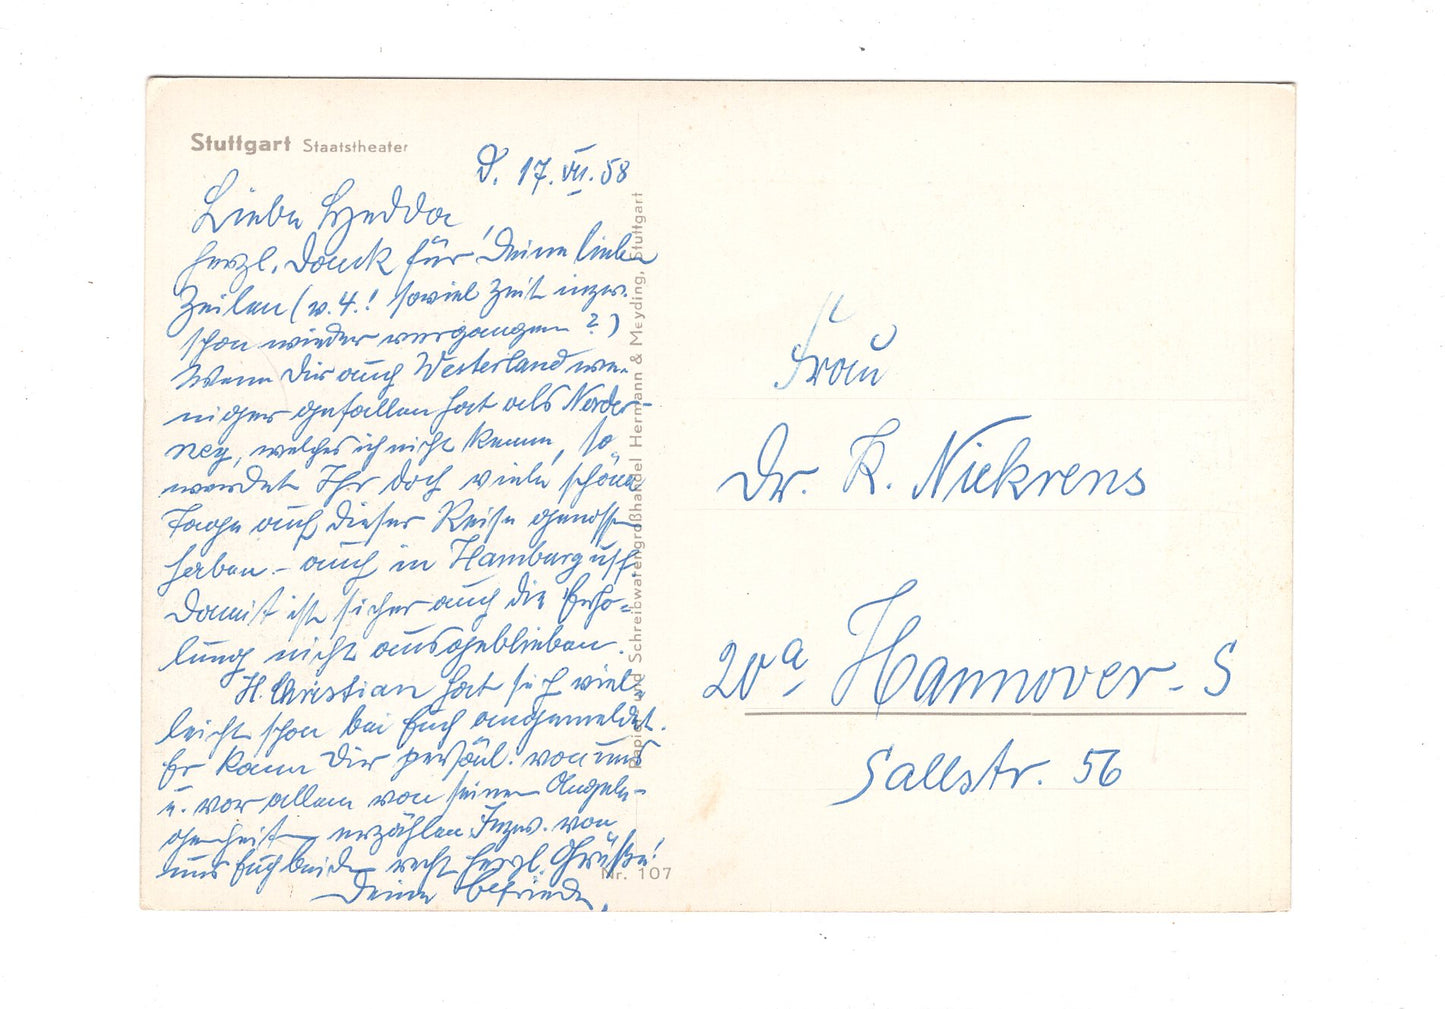 Stuttgart Staatstheater
D. 17. VII. 58
Liebe Hedda,
herzl. Dank für Deine lieben
Zeilen (v. 4.! soviel Zeit inzw.
schon wieder vergangen?)
Wenn Dir auch Westerland we-
niger gefallen hat als Norder-
ney, welches ich nicht kenne, so
werdet Ihr doch viele schöne
Tage auf dieser Reise genossen
haben. - auch in Hamburg usf.
Damit ist sicher auch die Erho-
lung nicht ausgeblieben.
H. Christian hat sich viel-
leicht schon bei Euch angemeldet.
Er kann Dir persönl. von uns
u. vor allem von seinen Angele-
genheiten erzählen. Inzw. von
uns Euch beiden recht herzl. Grüße!
Deine
Papier- und Schreibwarengroßhandel Hermann & Meyding, Stuttgart
Nr. 107
Frau
Dr. K. Niekrens
20a Hannover-S
Sallstr. 56